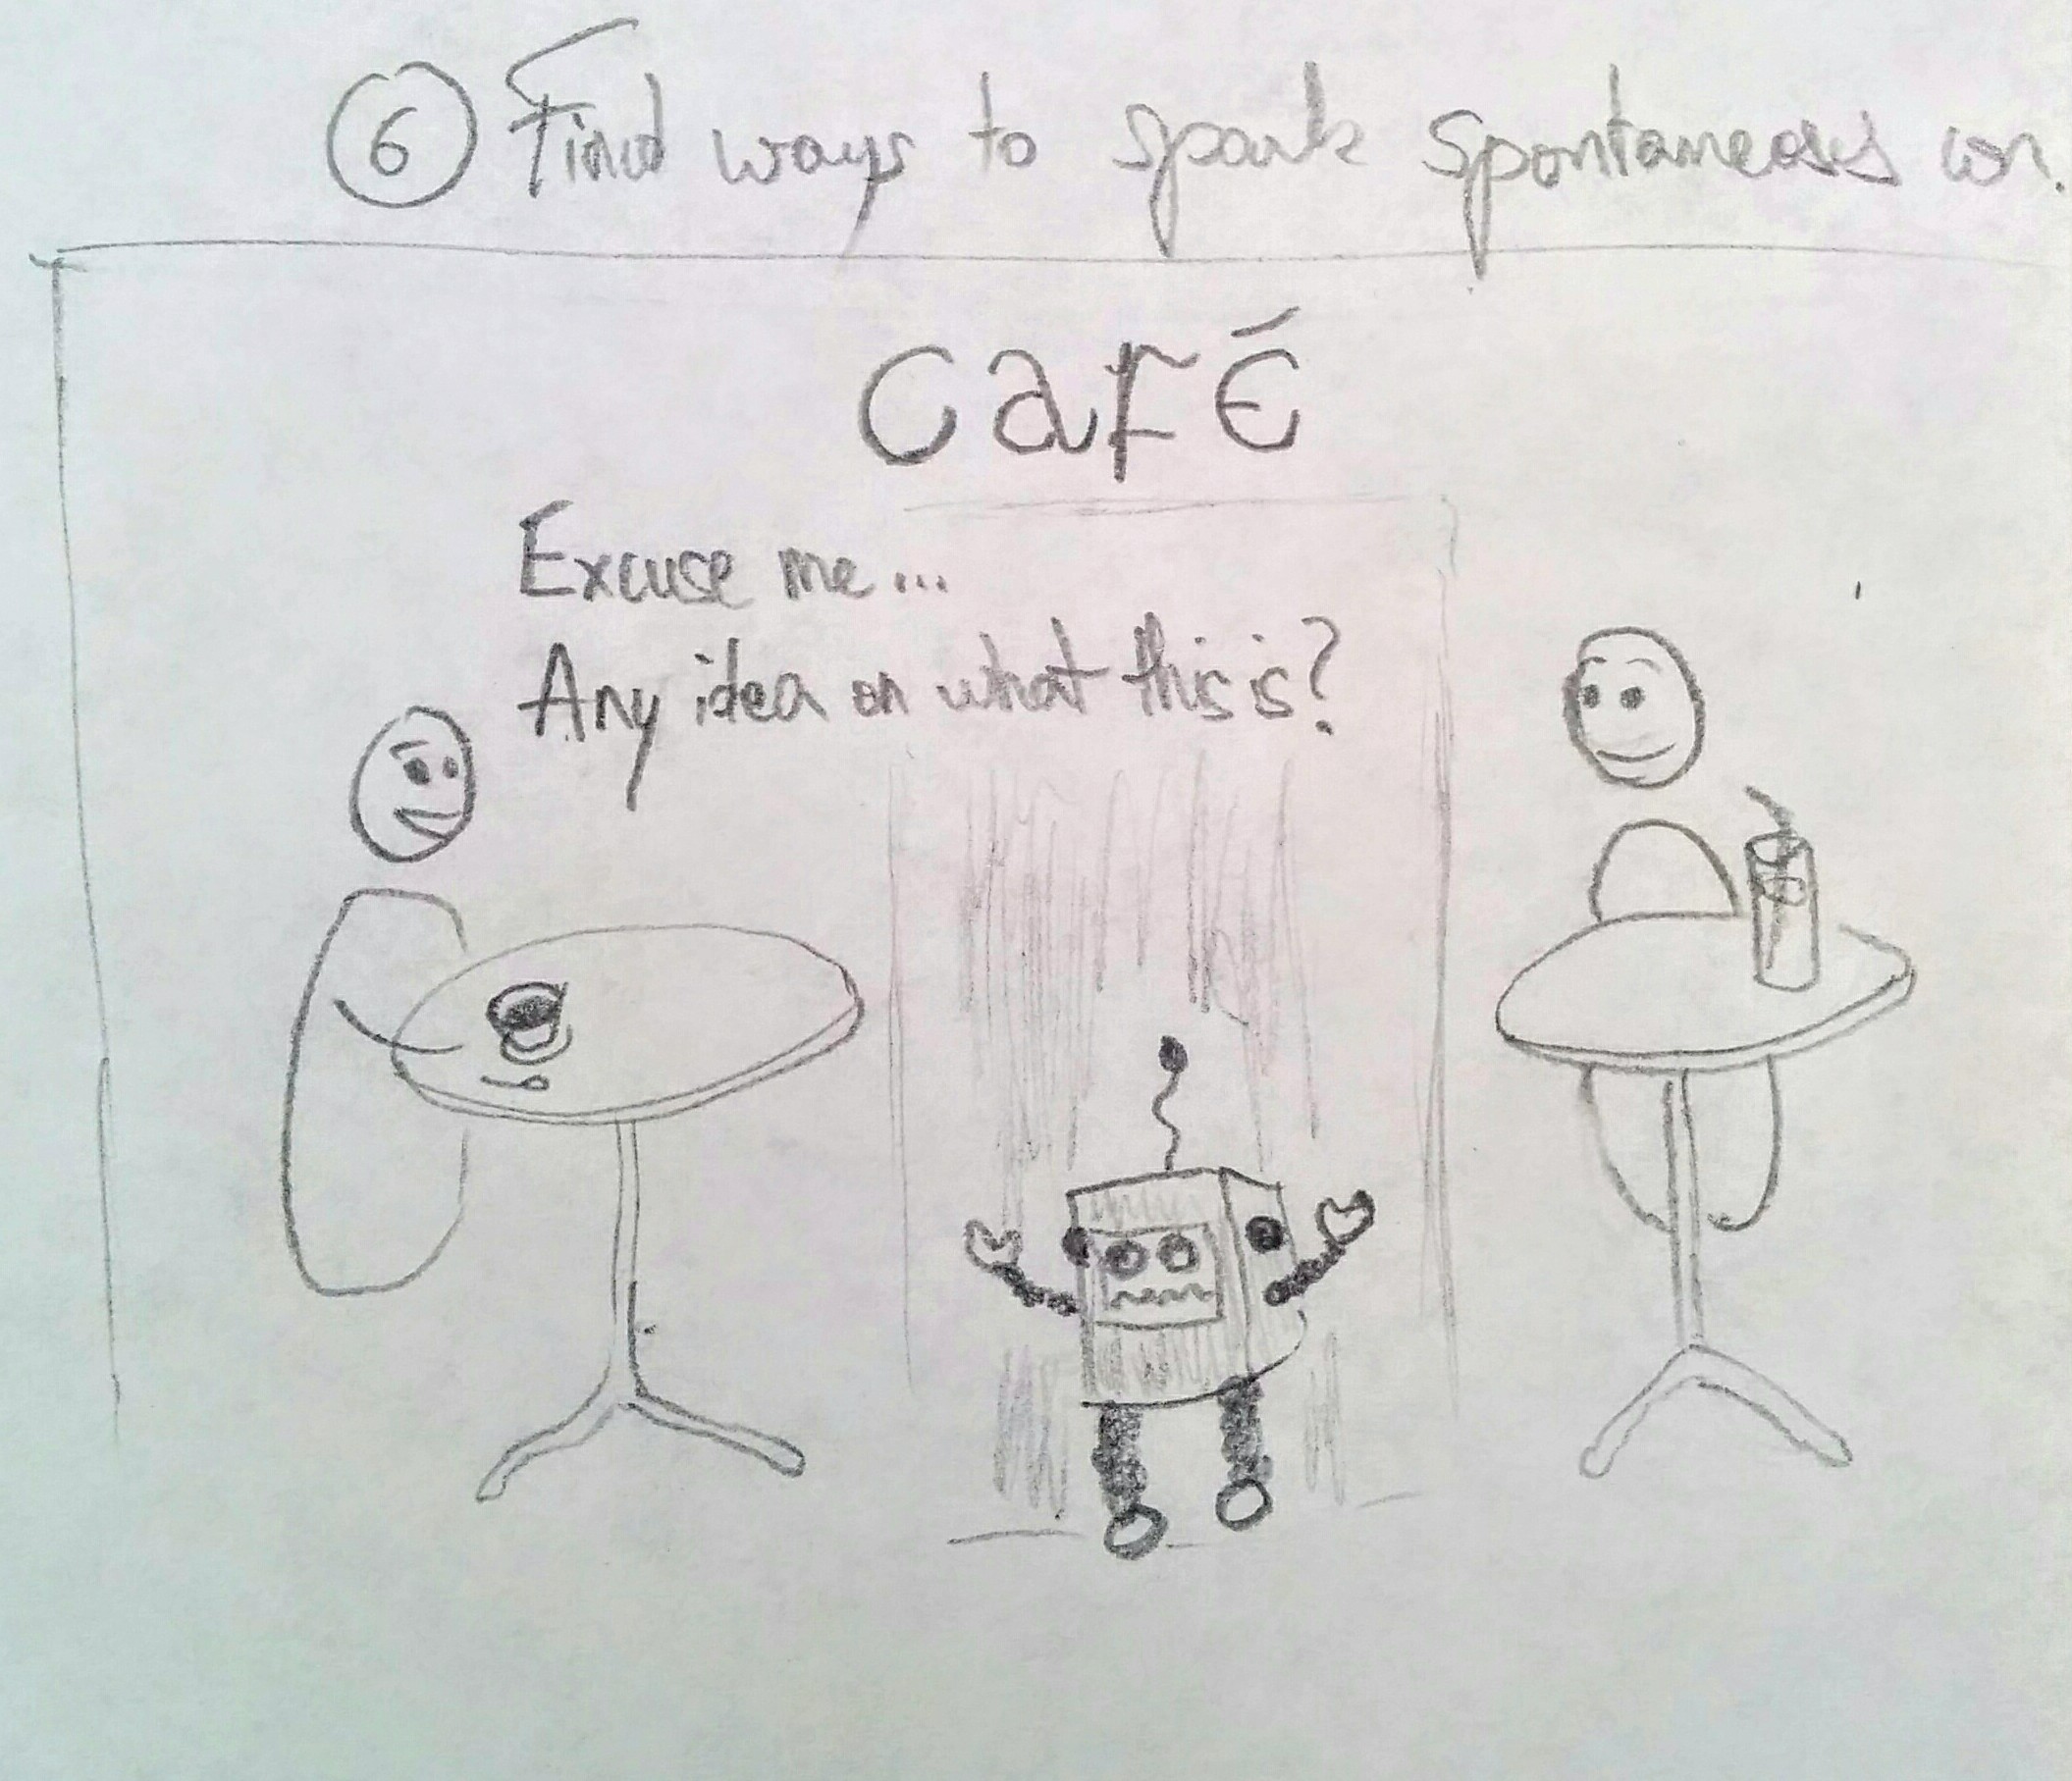 6 Find ways to spark spontaneous con.
café
Excuse me...
Any idea on what this is?